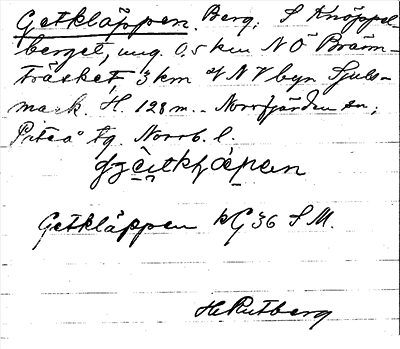 Getkläppen. Berg, S Knöppel-
berget, ung. 0,5 km NÖ Bränn-
träsket, 3 km NV byn Sjuls-
mark. H. 128 m. Norrfjärden sn,
Piteå tg. Norrb. l.
Getkläppen kG 36 S M.
H. Rutberg